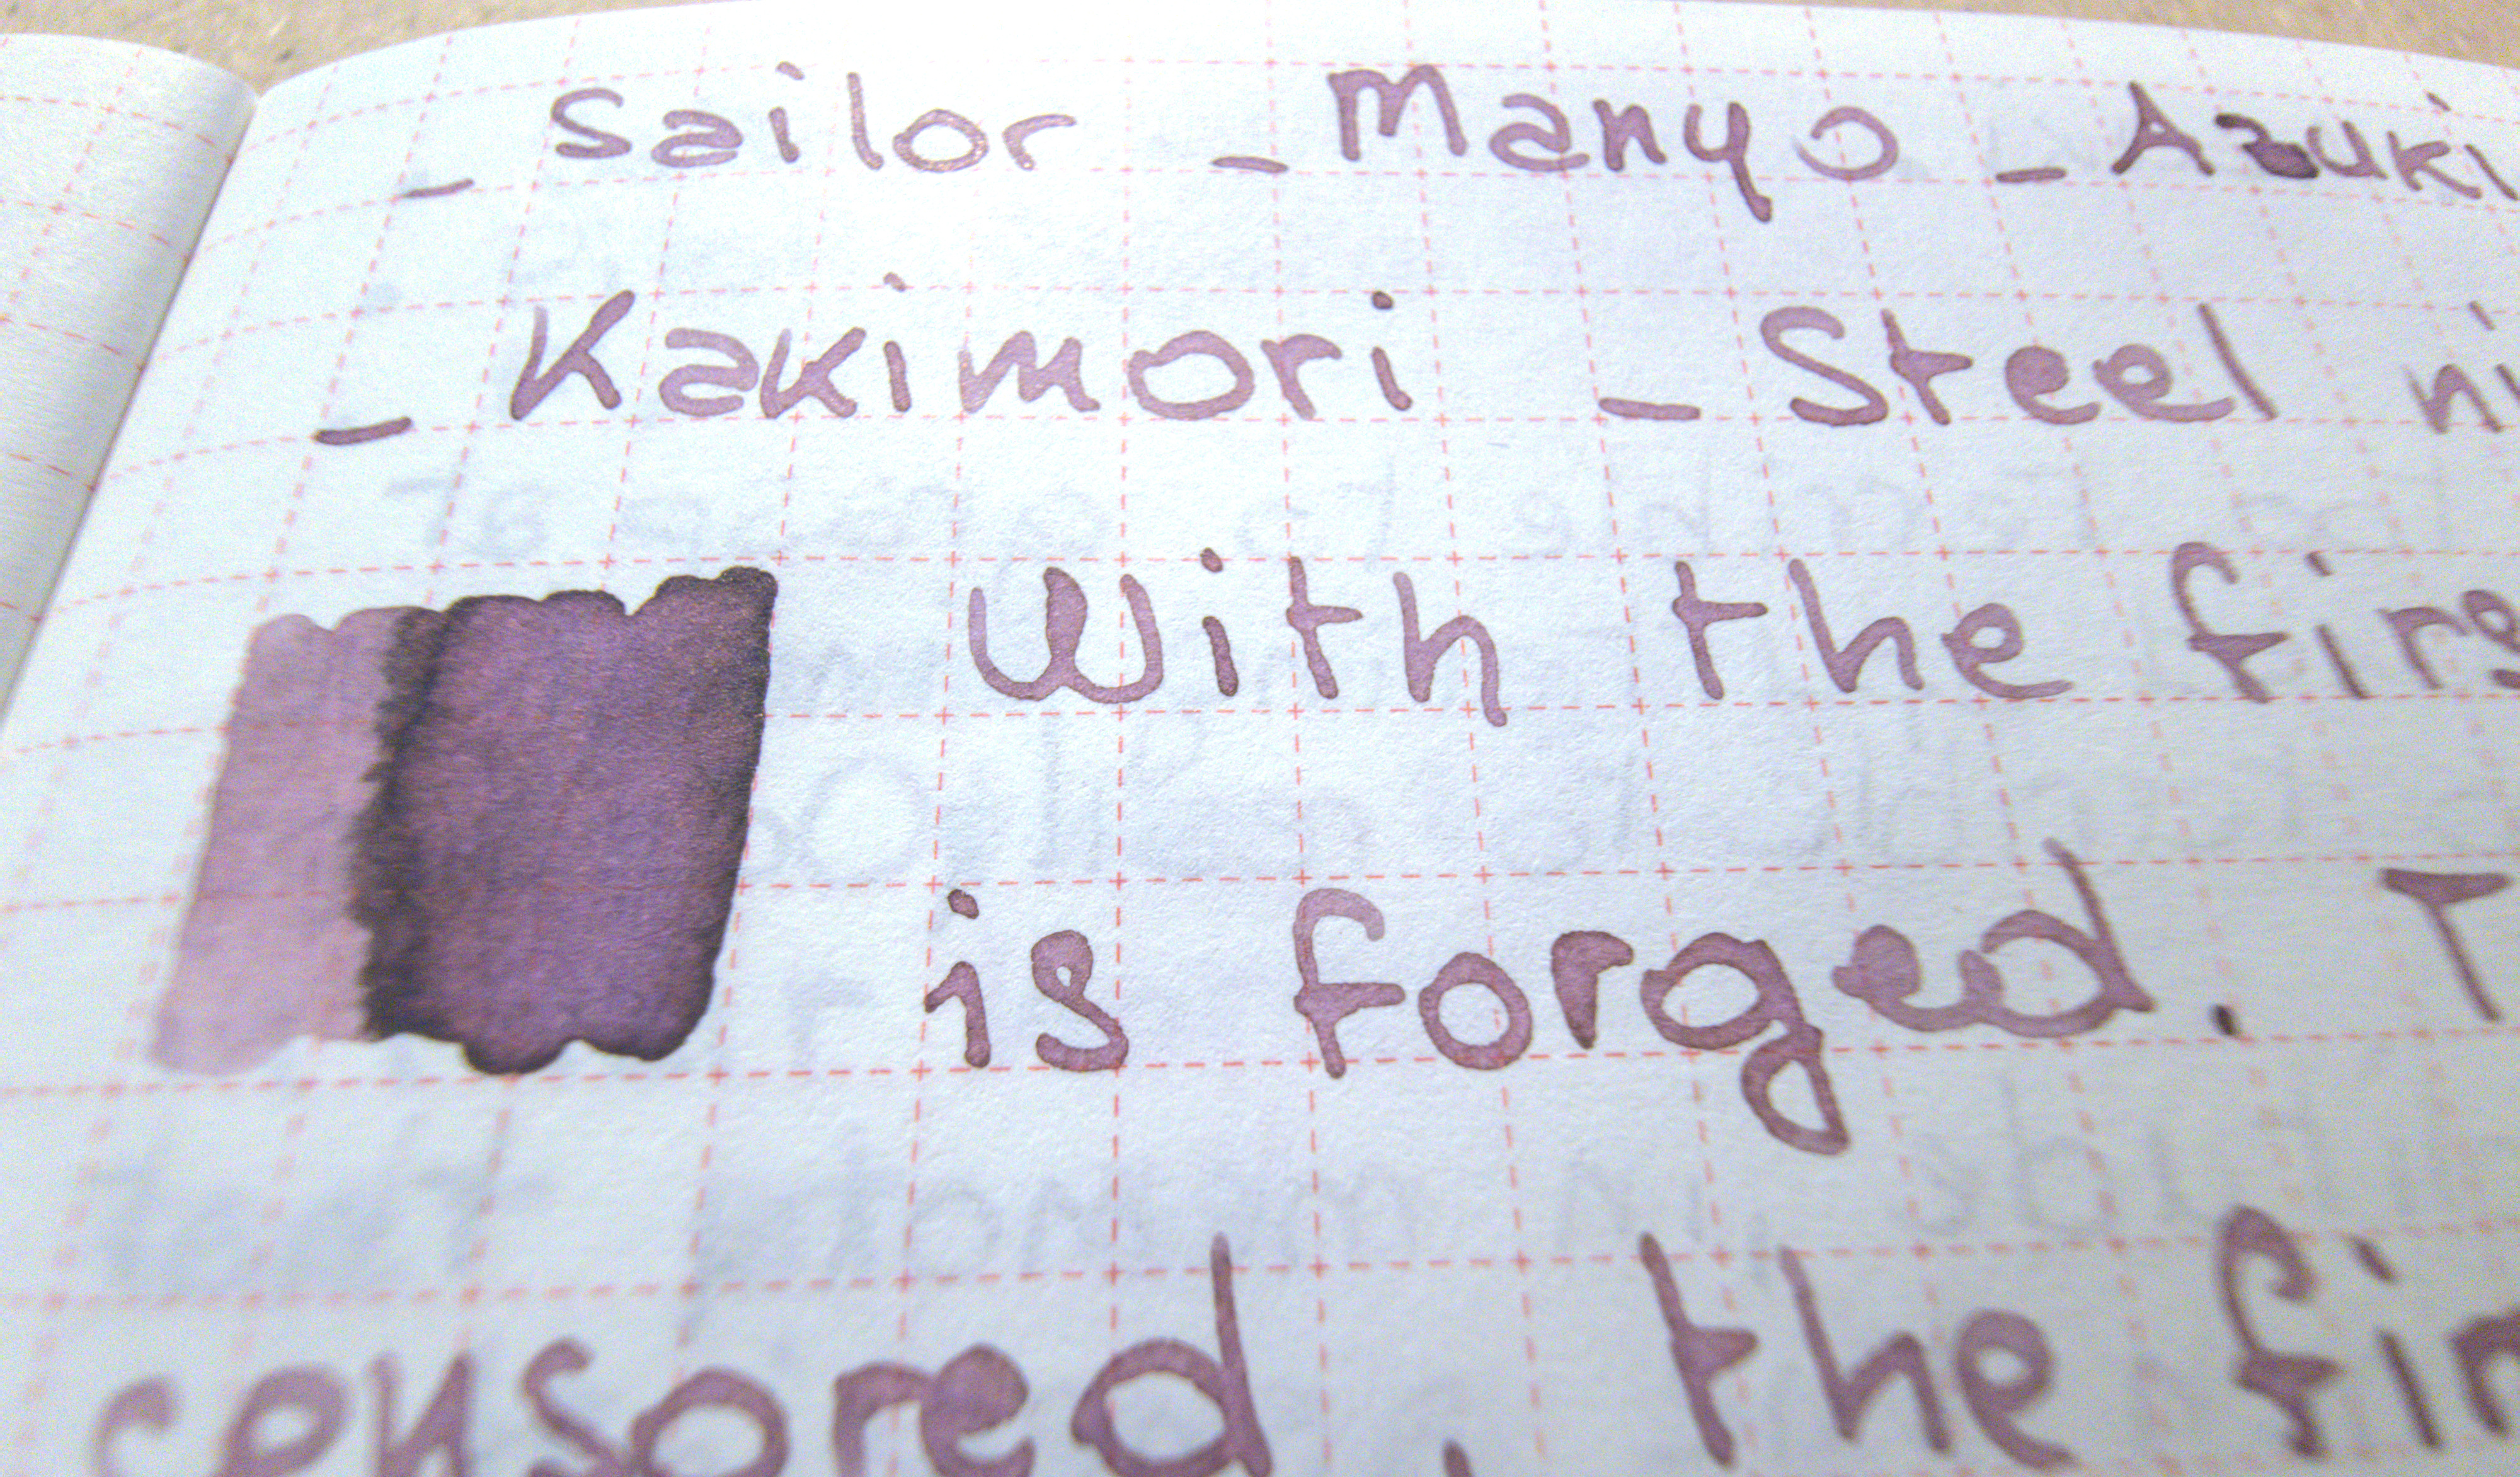 _ Sailor _ Manyo _ Azuki
_ Kakimori _ Steel
With the
is forged.
censored, the